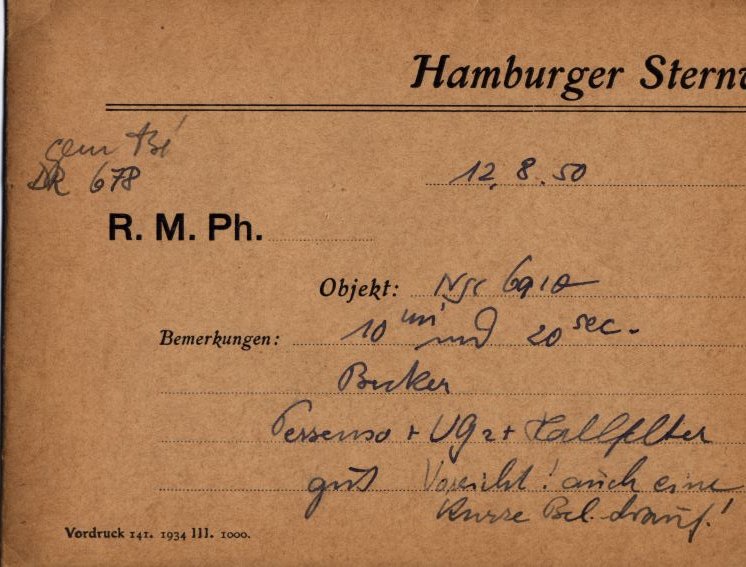 Hamburger Sternw
gem Bé
DR 678
12. 8. 50
R. M. Ph.
Objekt: Ngc 6910
Bemerkungen: 10 min und 20 sec.
Becker
Persenso + UG2 +
gut Vorsicht! auch eine
kurze Bel. drauf!
Vordruck 141. 1934 III. 1000.